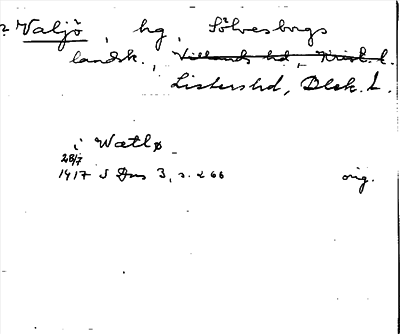 ? Valjö, hg, Sölvesborgs
landsk., Villands hd, Krist. l.
Listers hd, Blek. l.
i Wætlø
28/7
1417 S Dns 3, s. 266 orig.